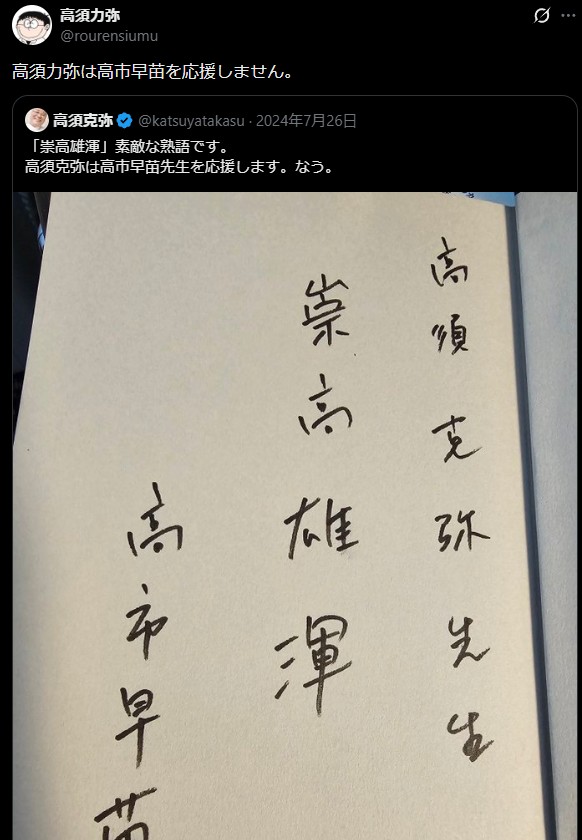 高須力弥
@rourensiumu
高須力弥は高市早苗を応援しません。
高須克弥 @katsuyatakasu · 2024年7月26日
「崇高雄渾」素敵な熟語です。
高須克弥は高市早苗先生を応援します。なう。
高須克弥先生
崇高雄渾
高市早苗